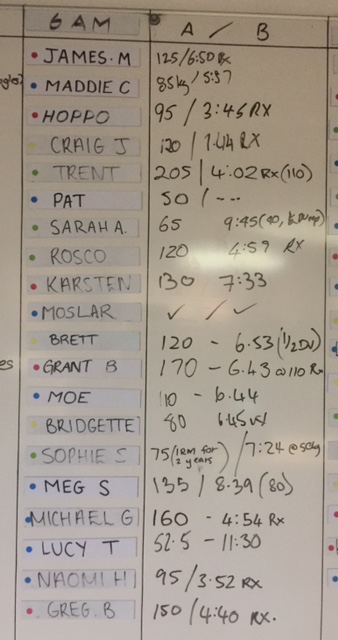 6 AM A / B
JAMES. M 125/6:50 Rx
MADDIE C 85kg/5:37
HOPPO 95 / 3:46 RX
CRAIG J 120 / 7.44 RX
TRENT 205 / 4:02 Rx (110)
PAT 50 / ---
SARAH A. 65 9:45 (40,
ROSCO 120 4:59 RX
KARSTEN 130 7:33
MOSLAR ✓ / ✓
BRETT 120 - 6.53 (1/2 DU)
GRANT B 170 - 6.43 @ 110 Rx
MOE 110 - 6.44
BRIDGETTE 80 6.45
SOPHIE S 75 (1RM for 2 years) / 7:24 @ 50kg
MEG S 135 / 8.39 (80)
MICHAEL G 160 - 4:54 Rx
LUCY T 52.5 - 11:30
NAOMI H 95/3:52 RX
GREG. B 150/4:40 RX.